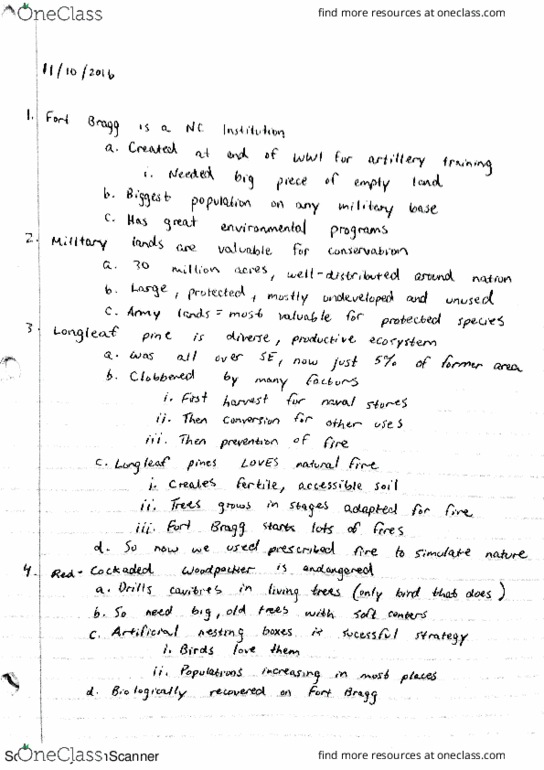 OneClass
find more resources at oneclass.com
11/10/2016
1. Fort Bragg is a NC Institution
a. Created at end of WWI for artillery training
i. Needed big piece of empty land
b. Biggest population on any military base
c. Has great environmental programs
2. Military lands are valuable for conservation
a. 30 million acres, well-distributed around nation
b. Large, protected, mostly undeveloped and unused
c. Army lands = most valuable for protected species
3. Longleaf pine is diverse, productive ecosystem
a. Was all over SE, now just 5% of former area
b. Clobbered by many factors
i. First harvest for naval stores
ii. Then conversion for other uses
iii. Then prevention of fire
c. Longleaf pines LOVES natural fire
i. Creates fertile, accessible soil
ii. Trees grows in stages adapted for fire
iii. Fort Bragg starts lots of fires
d. So now we used prescribed fire to simulate nature
4. Red-Cockaded Woodpecker is endangered
a. Drills cavities in living trees (only bird that does)
b. So need big, old trees with soft centers
c. Artificial nesting boxes is sucessful strategy
i. Birds love them
ii. Populations increasing in most places
d. Biologically recovered on Fort Bragg
OneClass
Scanner
find more resources at oneclass.com